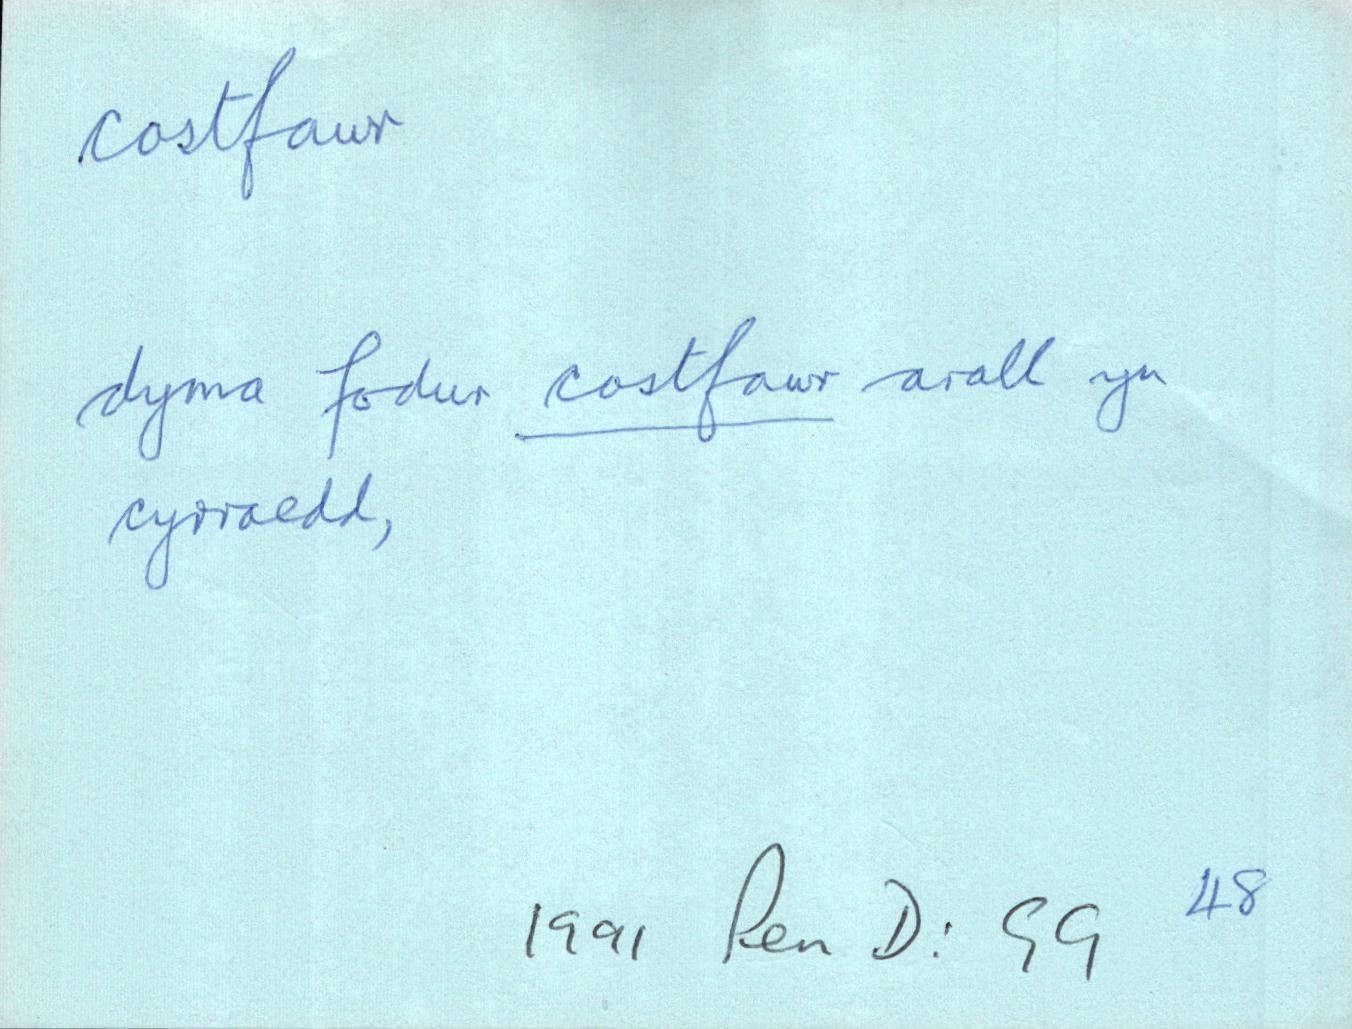 costfawr
dyma fodur costfawr arall yn
cyrraedd,
1991 Pen D: GG 48